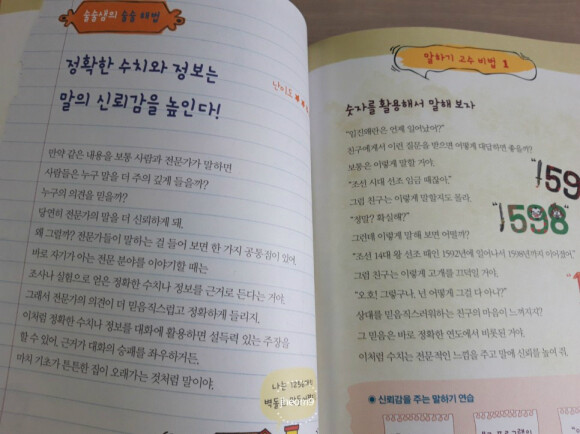 술술샘의 술술 해법
정확한 수치와 정보는
말의 신뢰감을 높인다!
난이도
만약 같은 내용을 보통 사람과 전문가가 말하면
사람들은 누구 말을 더 주의 깊게 들을까?
누구의 의견을 믿을까?
당연히 전문가의 말을 더 신뢰하게 돼.
왜 그럴까? 전문가들이 말하는 걸 들어 보면 한 가지 공통점이 있어.
바로 자기가 아는 전문 분야를 이야기할 때는
조사나 실험으로 얻은 정확한 수치나 정보를 근거로 든다는 거야.
그래서 전문가의 의견이 더 믿음직스럽고 정확하게 들리지.
이처럼 정확한 수치나 정보를 대화에 활용하면 설득력 있는 주장을
할 수 있어. 근거가 대화의 승패를 좌우하거든.
마치 기초가 튼튼한 집이 오래가는 것처럼 말이야.
나는
말하기 고수 비법 1
숫자를 활용해서 말해 보자
"임진왜란은 언제 일어났어?"
친구에게서 이런 질문을 받으면 어떻게 대답하면 좋을까?
보통은 이렇게 말할 거야.
"조선 시대 선조 임금 때잖아."
그럼 친구는 이렇게 말할지도 몰라.
"정말? 확실해?"
그런데 이렇게 말해 보면 어떨까?
"조선 14대 왕 선조 때인 1592년에 일어나서 1598년까지 이어졌어."
그럼 친구는 이렇게 고개를 끄덕일 거야.
"오호! 그렇구나. 넌 어떻게 그걸 다 아니?"
상대를 믿음직스러워하는 친구의 마음이 느껴지지?
그 믿음은 바로 정확한 연도에서 비롯된 거야.
이처럼 수치는 전문적인 느낌을 주고 말에 신뢰를 높여 줘.
159
"1598"
신뢰감을 주는 말하기 연습